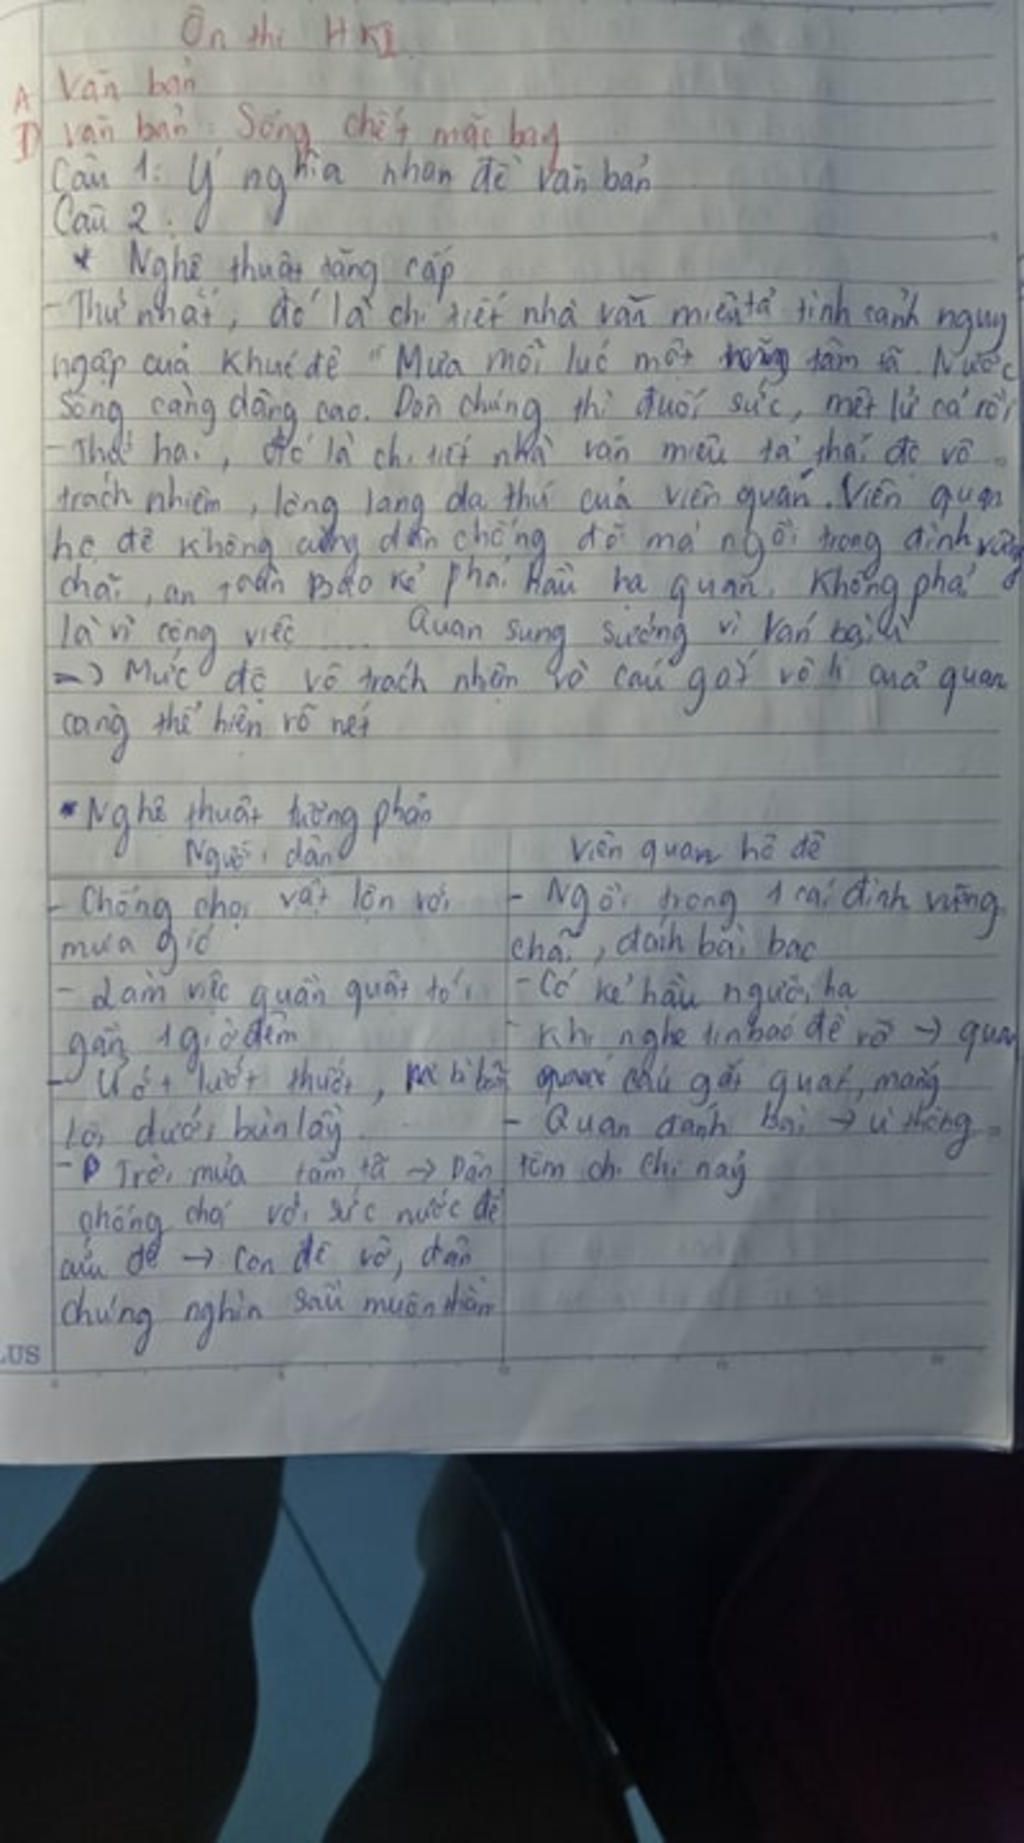 Ôn thi HKI
A Văn bản
I Văn bản: Sống chết mặc bay
Câu 1: Ý nghĩa nhan đề văn bản
Câu 2:
* Nghệ thuật tăng cấp
- Thứ nhất, đó là chi tiết nhà văn miêu tả tình cảnh nguy
ngập của khúc đê "Mưa mỗi lúc một tầm tã. Nước
Sông càng dâng cao. Dân chúng thì đuối sức, mệt lử cả rồi
- Thứ hai, đó là chi tiết nhà văn miêu tả thái độ vô
trách nhiệm, lòng lang dạ thú của viên quan. Viên quan
hộ đê không cùng dân chống đỡ mà ngồi trong đình vững
chãi, an toàn bảo kẻ phải hầu hạ quan, không phải
là vì công việc .... Quan sung sướng vì ván bài ù
=> Mức độ vô trách nhiệm và cáu gắt vô lí của quan
càng thể hiện rõ nét
* Nghệ thuật tương phản
Người dân Viên quan hộ đê
- Chống chọi vật lộn với - Ngồi trong 1 cái đình vững
mưa gió chãi, đánh bài bạc
- Làm việc quần quật tới - Có kẻ hầu người hạ
gần 1 giờ đêm - Khi nghe tin báo đê vỡ → quan
- Ướt lướt thướt, cáu gắt quát, mắng
lội dưới bùn lầy - Quan đánh bài → ù thông
- Trời mưa tầm tã → Dân tôm chi chi nảy
chống chọi với sức nước để
cứu đê → Con đê vỡ, dân
chúng nghìn sầu muôn thảm
LUS